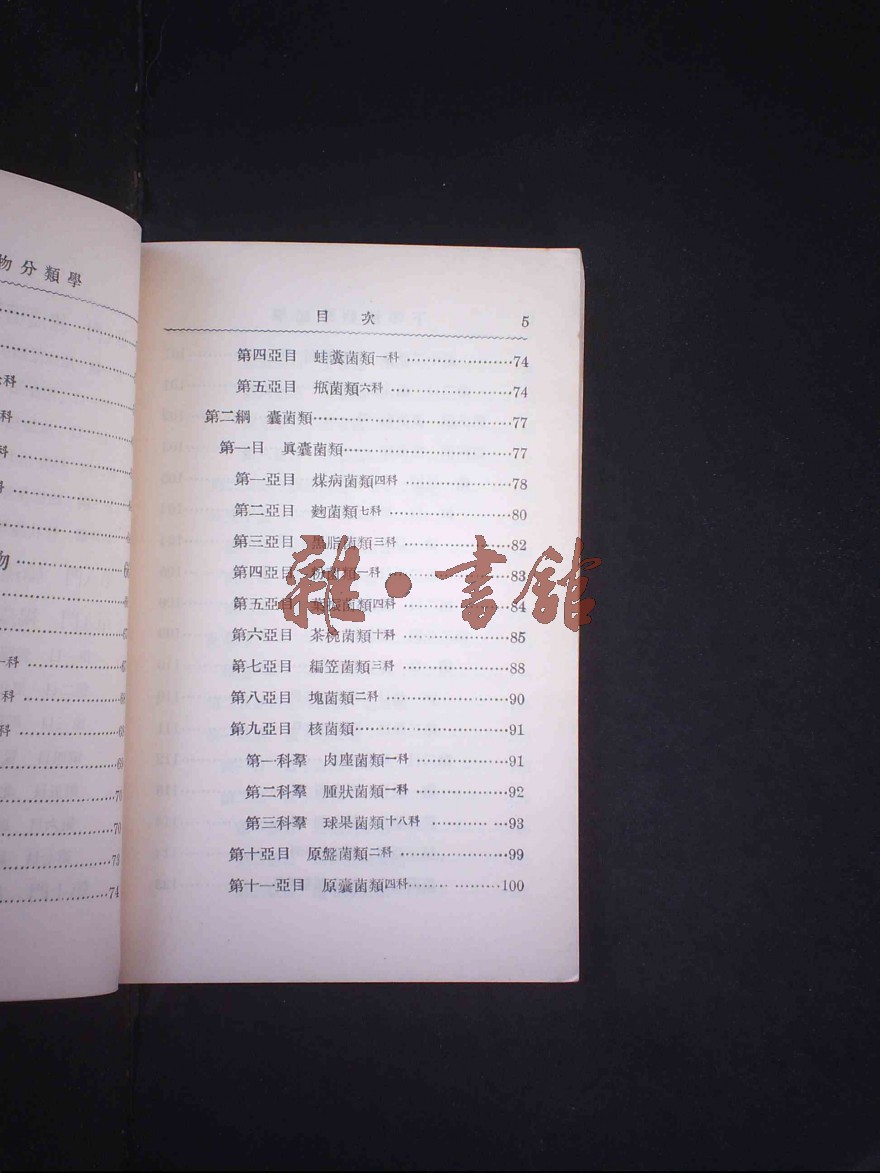 物分類學
科
科
科
科
物
一科
科
科
70
70
73
74
目 次 5
第四亞目 蛙糞菌類一科 74
第五亞目 瓶菌類六科 74
第二綱 囊菌類 77
第一目 眞囊菌類 77
第一亞目 煤病菌類四科 78
第二亞目 麴菌類七科 80
第三亞目 黑脂菌類三科 82
第四亞目 一科 83
第五亞目 菌類四科 84
第六亞目 茶椀菌類十科 85
第七亞目 編笠菌類三科 88
第八亞目 塊菌類二科 90
第九亞目 核菌類 91
第一科羣 肉座菌類一科 91
第二科羣 腫狀菌類一科 92
第三科羣 球果菌類十八科 93
第十亞目 原盤菌類二科 99
第十一亞目 原囊菌類四科 100
雜·書館